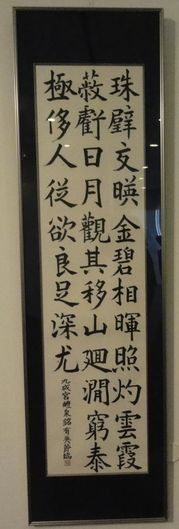 珠壁交暎金碧相暉照灼雲霞
蔽虧日月觀其移山廻澗窮泰
極侈人從欲良足深尤
九成宮醴泉銘有英節臨